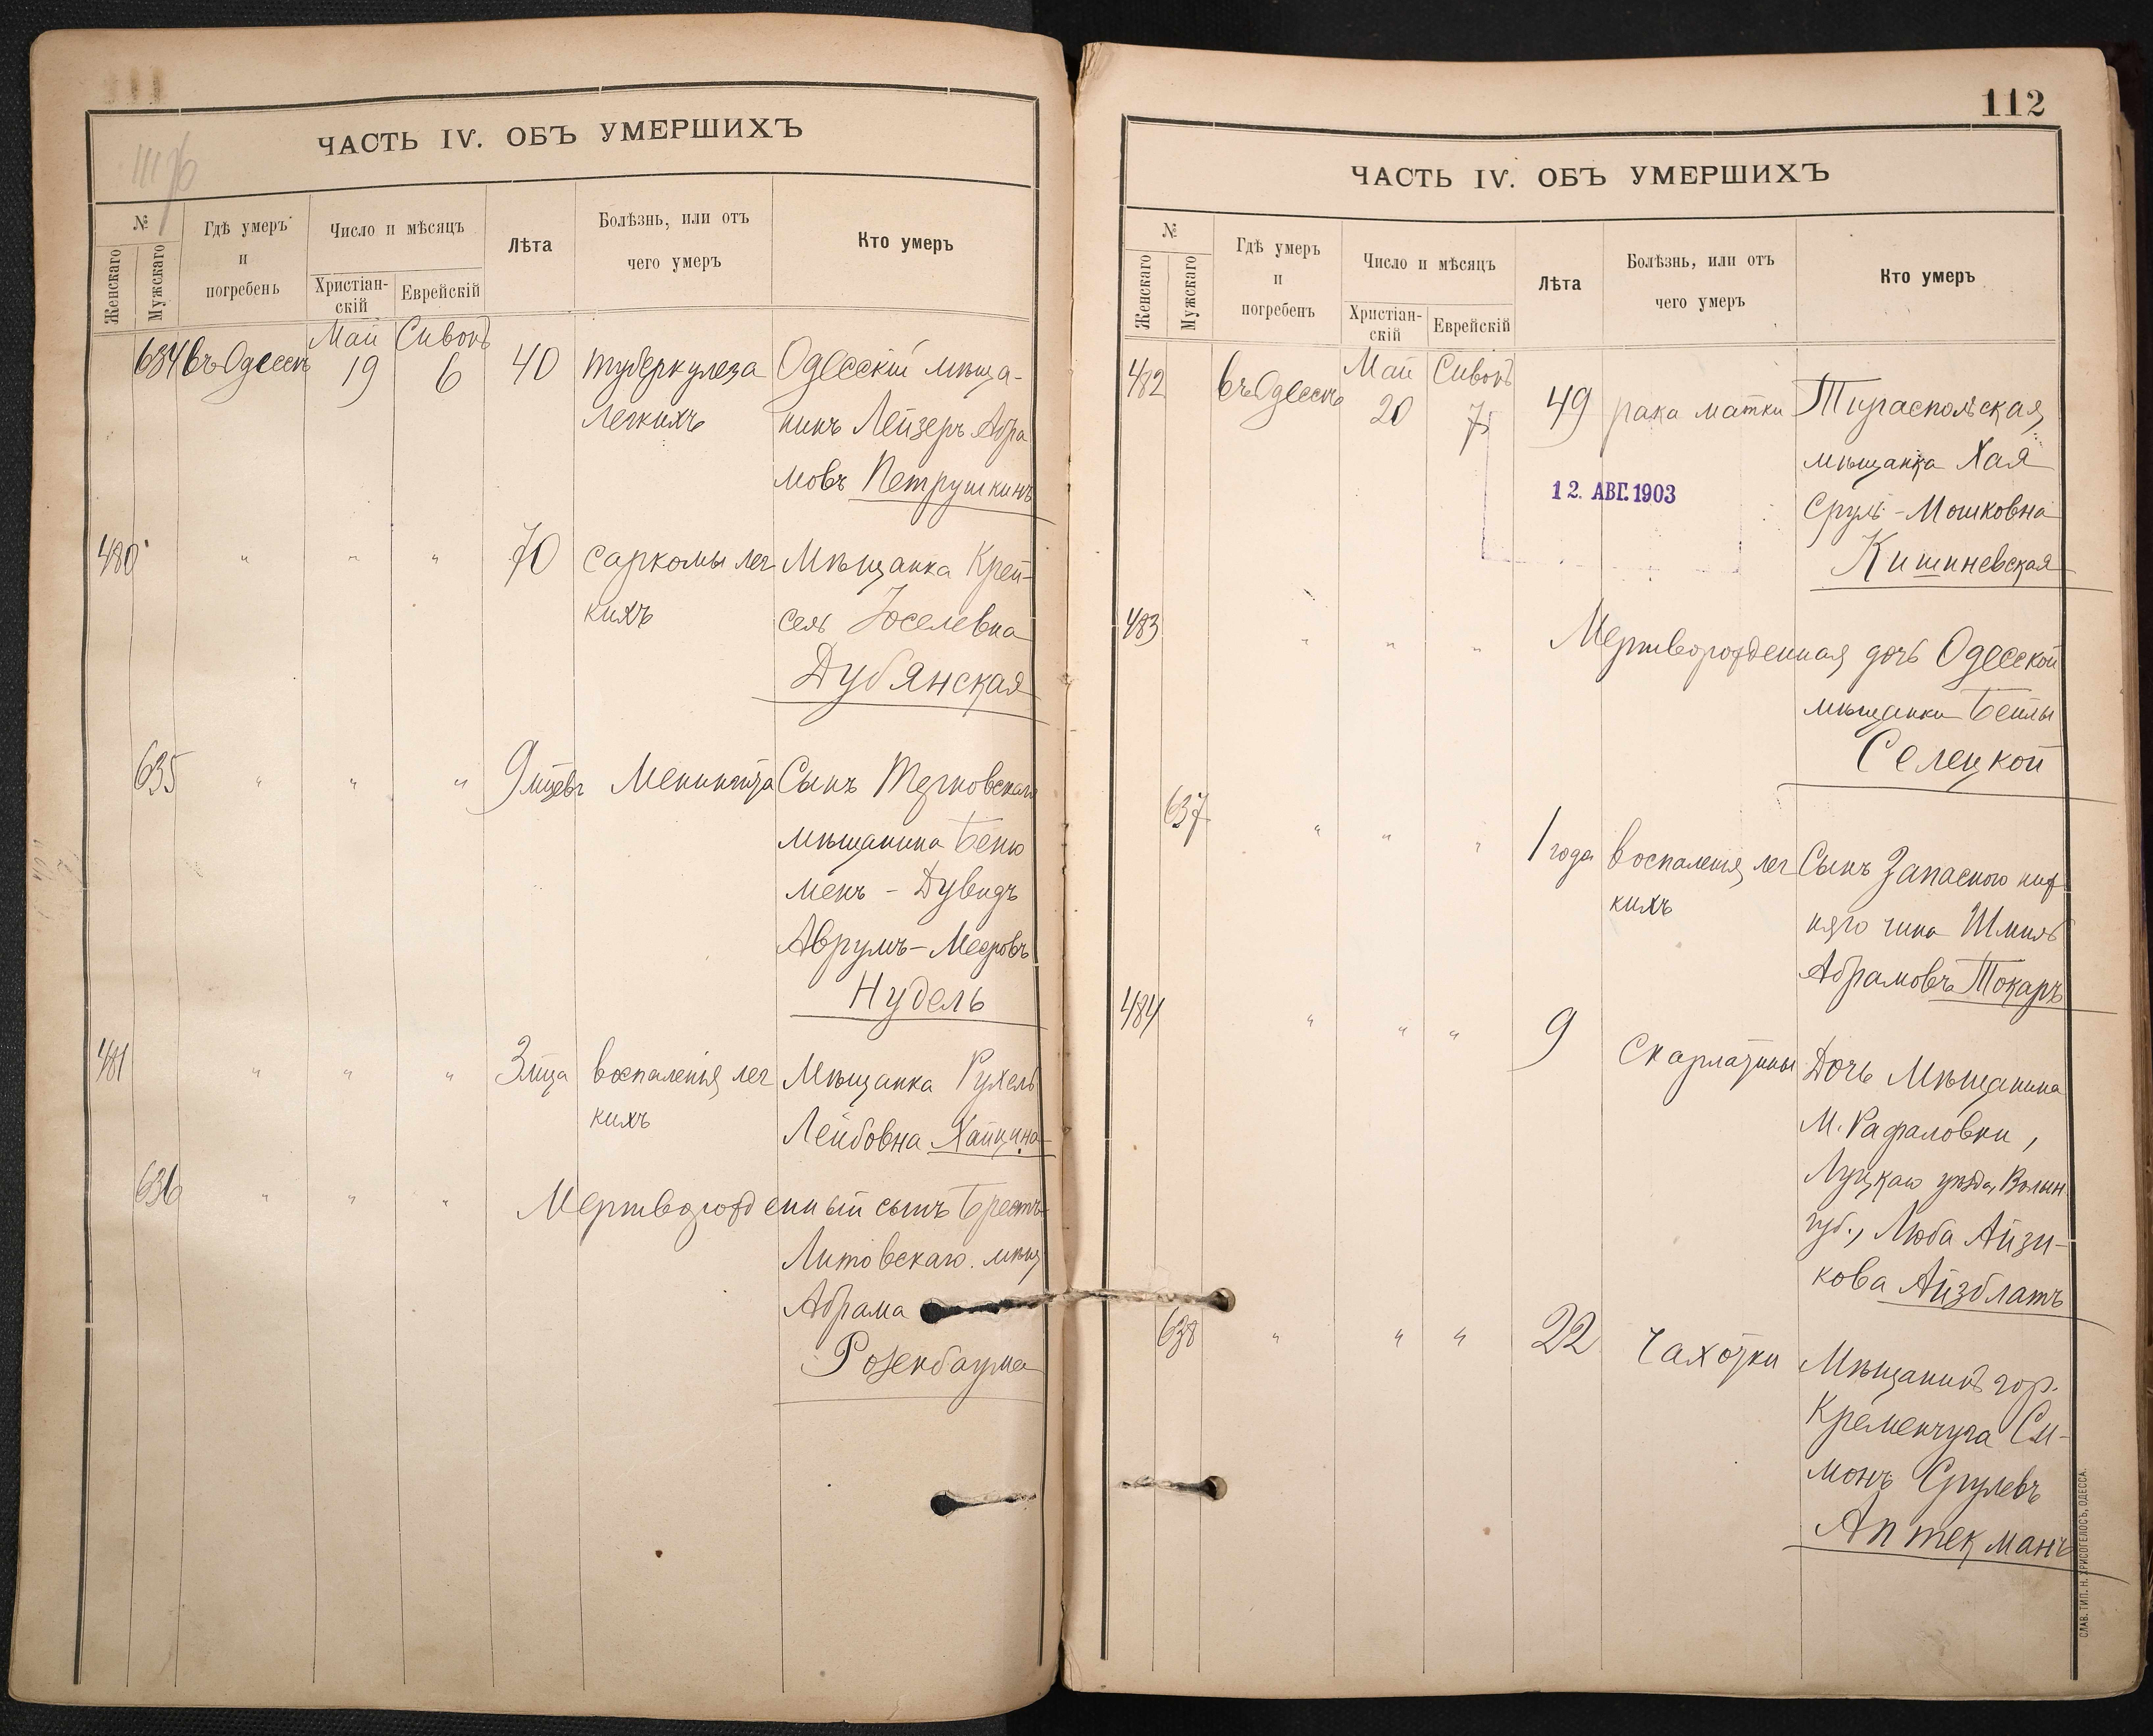 111б
ЧАСТЬ IV. ОБЪ УМЕРШИХЪ
№
Женскаго
Мужскаго
Гдѣ умеръ
и
погребенъ
Число и мѣсяцъ
Христіан-
скій
Еврейскій
Лѣта
Болѣзнь, или отъ
чего умеръ
Кто умеръ
Май Сивонъ
634 въ Одессѣ 19 6 40 туберкулеза Одесскій мѣща-
легкихъ нинъ Лейзеръ Абра
мовъ Петрушкинъ
480 " " " 70 саркомы лег Мѣщанка Крей-
кихъ сель Іоселевна
Дубянская
635 " " " 9 мцевъ Менингита Сынъ
мѣщанина Беню
менъ - Дувидъ
Аврумъ-Мееровъ
Нудель
481 " " " 3 мца воспаленія лег Мѣщанка Рухель
кихъ Лейбовна Хайкина
636 " " " Мертворожденный сынъ Брестъ-
Литовскаго мѣщ
Абрама
Розенбаума
112
ЧАСТЬ IV. ОБЪ УМЕРШИХЪ
№
Женскаго
Мужскаго
Гдѣ умеръ
и
погребенъ
Число и мѣсяцъ
Христіан-
скій
Еврейскій
Лѣта
Болѣзнь, или отъ
чего умеръ
Кто умеръ
Май Сивонъ
482 въ Одессѣ 20 7 49 рака матки Тираспольская
мѣщанка Хая
12. АВГ. 1903
Сруль-Мошковна
Кишиневская
483 " " " Мертворожденная дочь Одесской
мѣщанки Бейлы
Селецкой
637 " " " 1 года воспаленія лег Сынъ Запасного ниж
кихъ няго чина Шмиль
Абрамовъ Токаръ
484 " " " 9 Скарлатины Дочь Мѣщанина
М. Рафаловки,
Луцкаго уѣзда, Волын.
губ., Люба Айзи-
кова Айзблатъ
638 " " " 22 Чахотки Мѣщанинъ гор.
Кременчуга Си-
монъ Срулевъ
Аптекманъ
СЛАВ. ТИП. Н. ХРИСОГЕЛОСЪ, ОДЕССА.